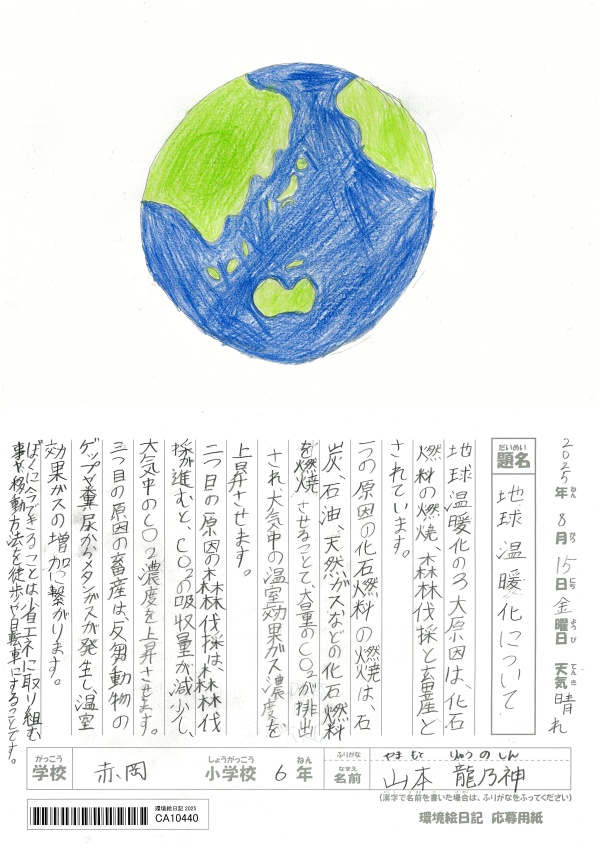 2025年 8月 15日 金曜日 天気 晴れ
ねん がつ にち ようび てんき
だいめい
題名 地球温暖化について
地球温暖化の3大原因は、化石
燃料の燃焼、森林伐採と畜産と
されています。
一つの原因の化石燃料の燃焼は、石
炭、石油、天然ガスなどの化石燃料
を燃焼させることで、大量のCO2が排出
され、大気中の温室効果ガス濃度を
上昇させます。
二つ目の原因の森林伐採は、森林伐
採が進むと、CO2の吸収量が減少し、
大気中のCO2濃度を上昇させます。
三つ目の原因の畜産は、反芻動物の
ゲップや糞尿からメタンガスが発生し、温室
効果ガスの増加に繋がります。
ぼくに今できることは、省エネに取り組む
事や移動方法を徒歩や自転車にすることです。
がっこう しょうがっこう ねん ふりがな やまもと りゅうのしん
学校 赤岡 小学校 6年 なまえ 名前 山本 龍乃神
(漢字で名前を書いた場合は、ふりがなをふってください)
環境絵日記 2025
CA10440
環境絵日記 応募用紙